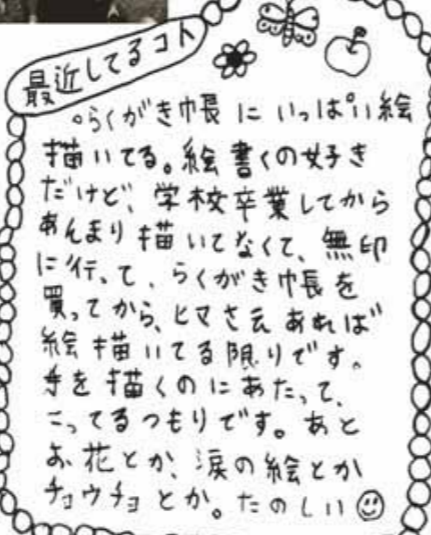 最近してるコト
。らくがき帳にいっぱい絵
描いてる。絵書くの好き
だけど、学校卒業してから
あんまり描いてなくて、無印
に行って、らくがき帳を
買ってから、ヒマさえあれば
絵描いてる限りです。
手を描くのにあたって、
こってるつもりです。あと
お花とか、涙の絵とか
チョウチョとか。たのしい